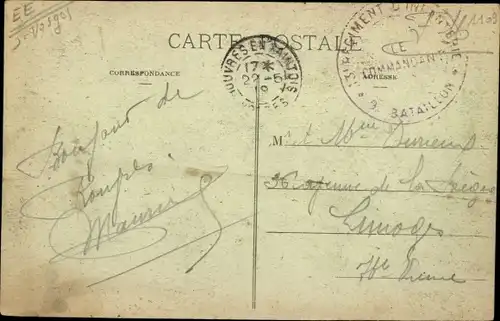 EE
Vosges
CARTE POSTALE
CORRESPONDANCE
ADRESSE
ROUVRES EN XAINTOIS
17 *
22-5
VOSGES
RÉGIMENT D'INFANTERIE
LE
COMMANDANT
* 9e BATAILLON *
Bonjour de
Rouvres
Maurice
M r et Mme Durieux
36 Avenue de la
Limoges
Hte Vienne